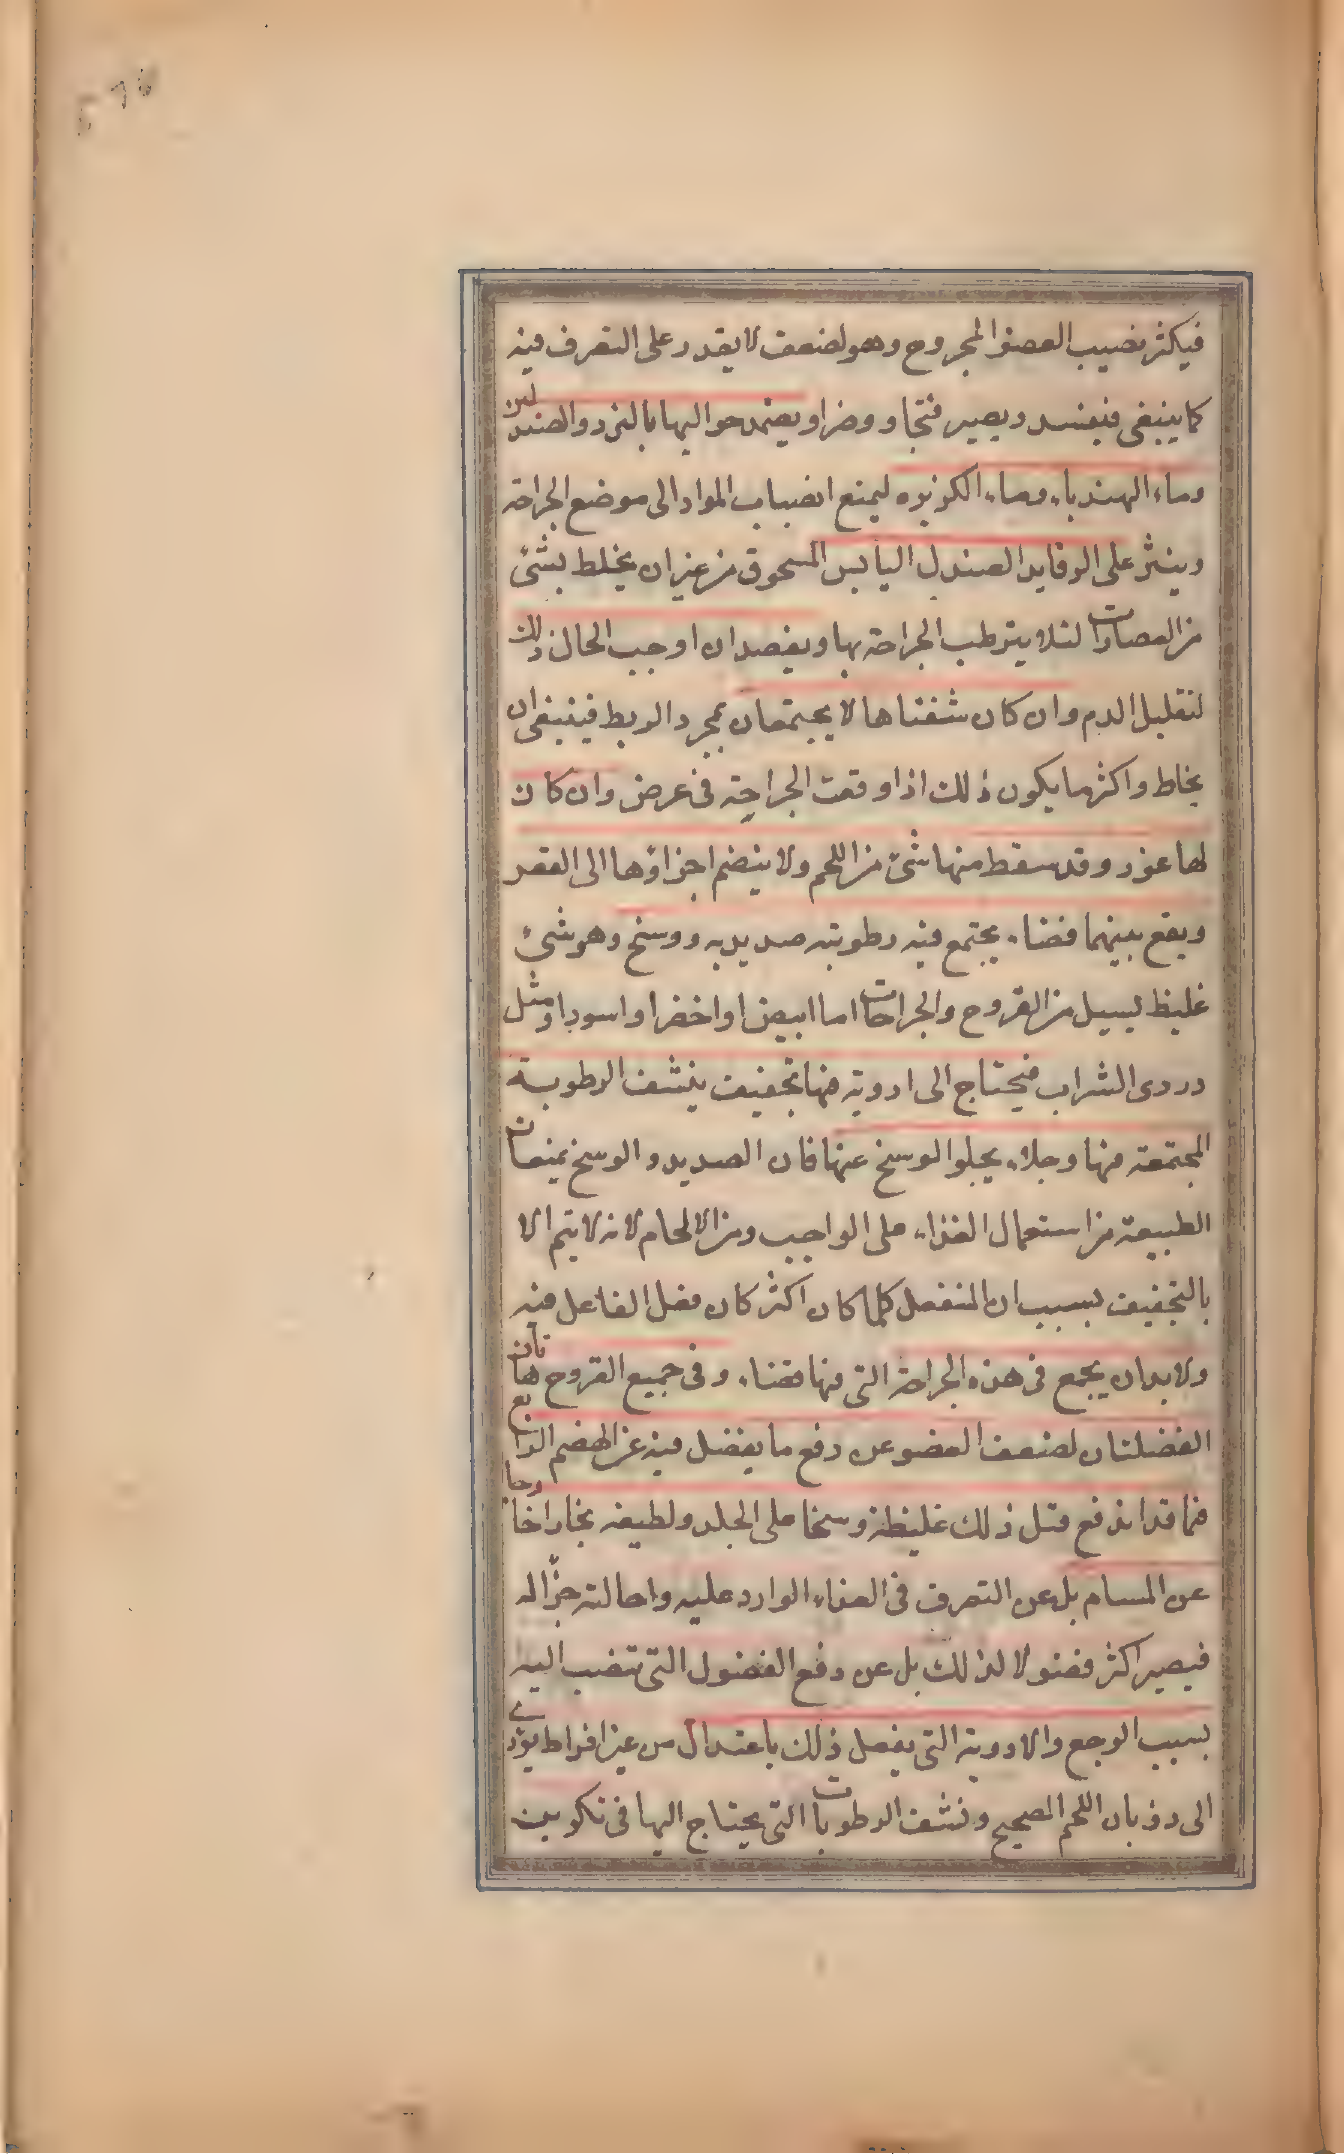 فيكثر نصيب العضو المجروح وهو لضعفه لا يقدر على التصرف فيه
كما ينبغي فيفسد ويصير قيحا ووضرا ويضمد حواليها بالنرد والصندلين
وماء الهندباء وماء الكزبره ليمنع انصباب المواد الى موضع الجراحة
وينثر على الرفايد الصندل اليابس المسحوق من غير ان يخلط بشئ
من العصارات لئلا يترطب الجراحة بها ويفصد ان اوجب الحال ذلك
لتقليل الدم وان كان شفتاها لا يجتمعان بمجرد الربط فينبغي ان
يخاط واكثر ما يكون ذلك اذا وقعت الجراحة في عرض وان كان
لها غور وقد سقط منها شئ من اللحم ولا ينضم اجزاؤها الى القعر
ويقع بينهما فضاء يجتمع فيه رطوبة صديدية ووسخ وهو شئ
غليظ يسيل من القروح والجراحات اما ابيض او اخضر او اسود او مثل
دردى الشراب فيحتاج الى ادوية فيها تجفيف ينشف الرطوبة
المجتمعة فيها وجلاء يجلو الوسخ عنها فان الصديد والوسخ يمنعان
الطبيعة من استعمال الغذاء على الواجب ومن الالحام لانه لا يتم الا
بالتجفيف بسبب ان المنفعل كلما كان اكثر كان فعل الفاعل فيه
ولا بد ان يجمع في هذه الجراحة التي فيها فضاء وفي جميع القروح هاتان
الفضلتان لضعف العضو عن دفع ما يفضل فيه عن الهضم الرابع
فما قد اندفع قبل ذلك غليظه وسخا على الجلد ولطيفه بخارا خارجا
عن المسام بل عن التصرف في الغذاء الوارد عليه واحالته جزأ له
فيصير اكثر فضولا لذلك بل عن دفع الفضول التي تنصب اليه
بسبب الوجع والادوية التي يفعل ذلك باعتدال من غير افراط يؤدى
الى ذوبان اللحم الصحيح ونشف الرطوبات التي يحتاج اليها في تكوين